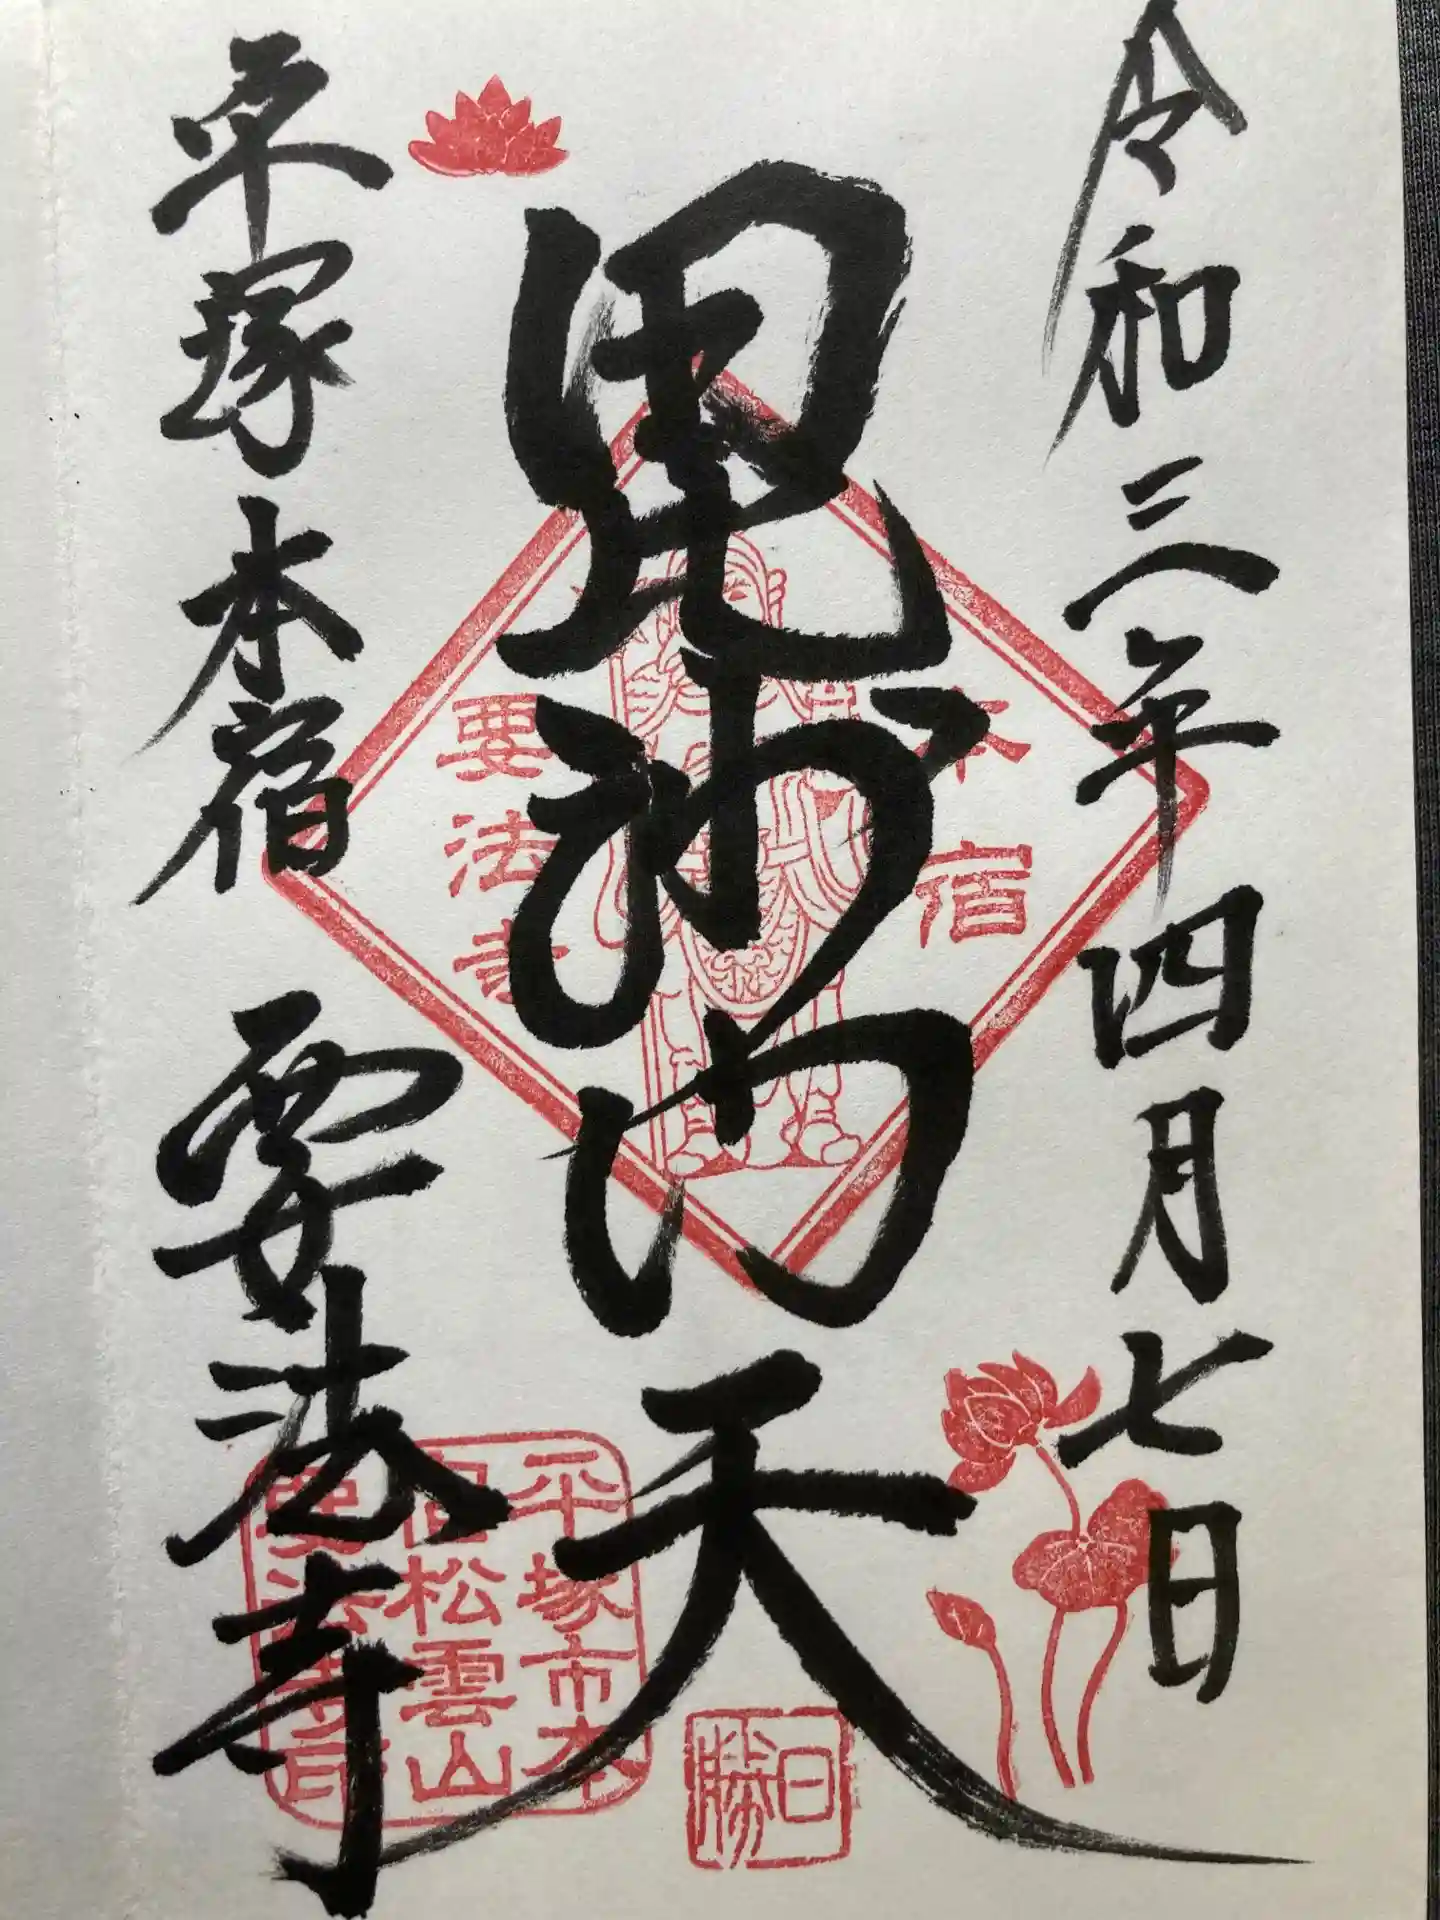 令和三年四月七日
毘沙門天
平塚本宿 要法寺
本宿
要法寺
平塚市本
宿松雲山
要法寺印
日勝